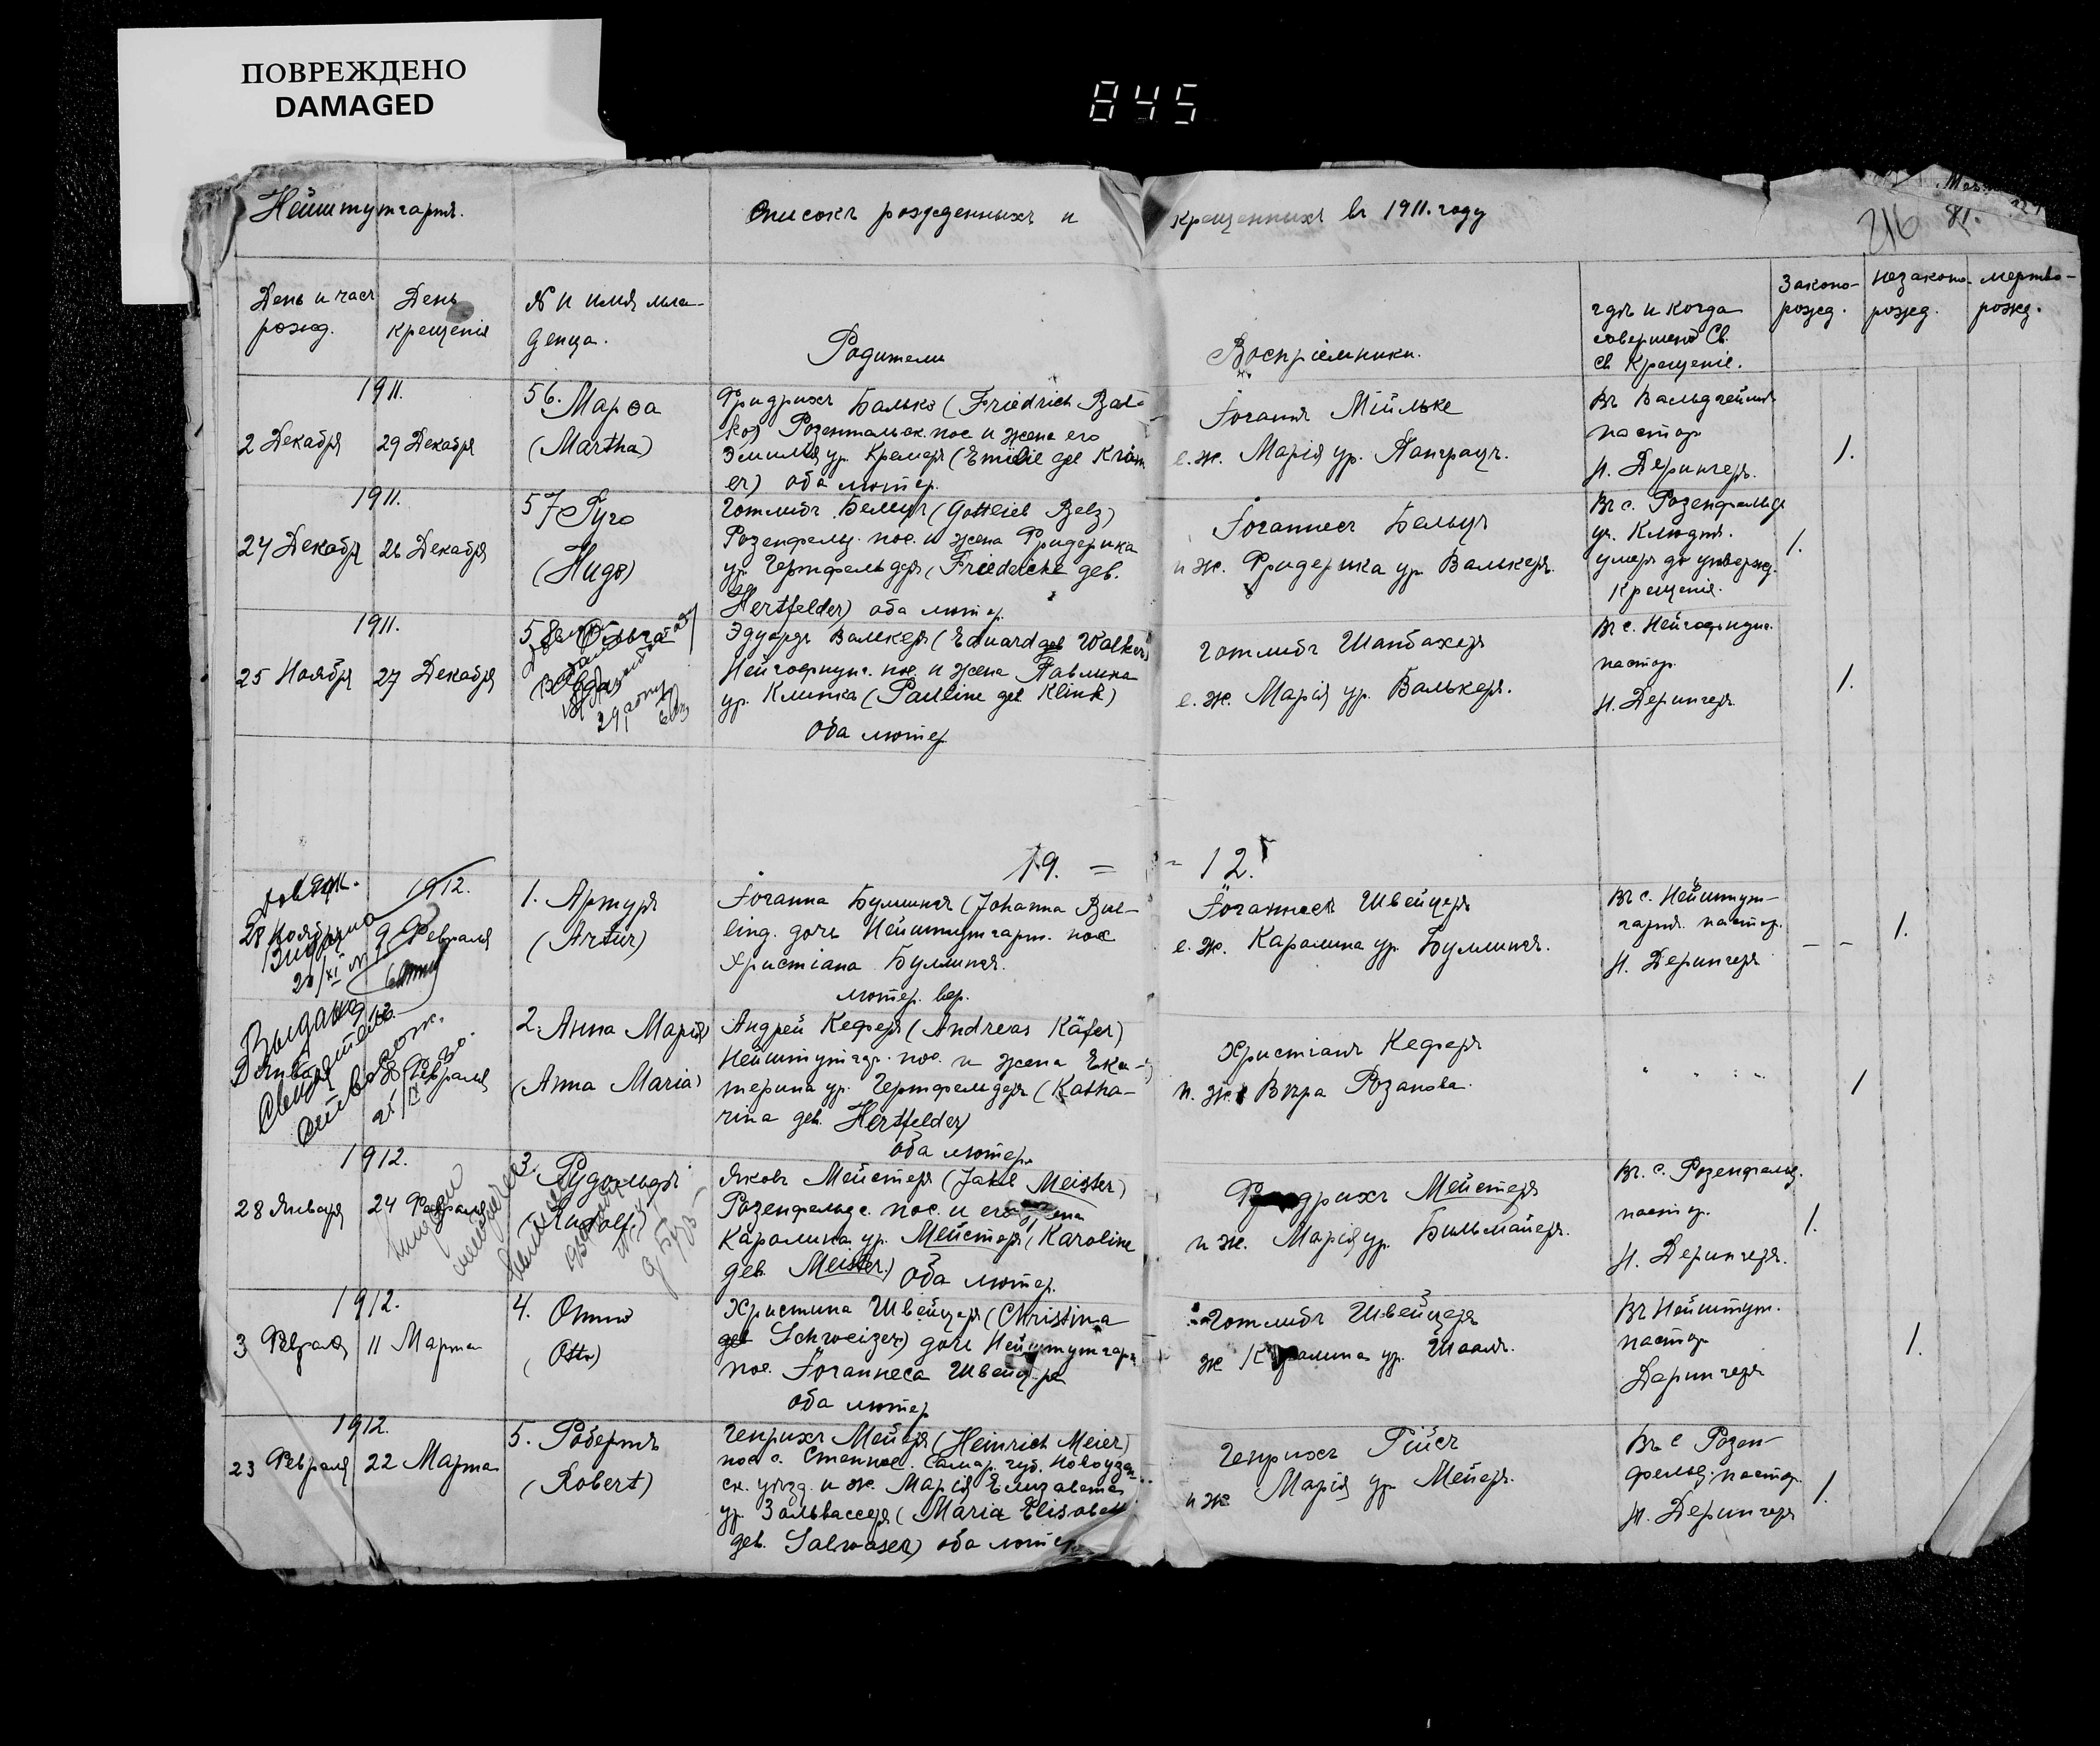 ПОВРЕЖДЕНО
DAMAGED
845
Нейштутгартъ.
Списокъ рожденныхъ и крещенныхъ въ 1911. году
216
81.
День и часъ рожд.
День крещенія
№ и имя мла-
денца.
Родители
Воспріемники.
гдѣ и когда
совершено Св.
Св Крещеніе.
Законо-
рожд.
незаконо-
рожд.
мертво-
рожд.
1911.
2 Декабря
29 Декабря
56. Марѳа
(Martha)
Фридрихъ Балько (Friedrich Bal-
ko) Розентальск. пос. и жена его
Эмилія ур. Крамеръ (Emilie geb Kräm
er) оба лютер.
Іоганнъ Мільке
е. ж. Марія ур. Панграцъ.
Въ Вальдгеймѣ
пастор
И. Дерингеръ.
1.
1911.
24 Декабря
26 Декабря
57 Гуго
(Hugo)
Готлибъ Бельцъ (Gottlieb Belz)
Розенфельд. пос. и жена Фридерика
ур. Гертфельдеръ (Friedericke geb.
Hertfelder) оба лютер.
Іоганнесъ Бельцъ
и ж. Фридерика ур. Валькеръ.
Въ с. Розенфельдѣ
уч. Клюдтъ.
умеръ до утвержд.
крещенія.
1.
1911.
25 Ноября
27 Декабря
58. Ольга
Эдуардъ Валькеръ (Eduard geb Walker)
Нейгофнунг. пос. и жена Павлина
ур. Клинкъ (Pauline geb Klink)
оба лютер
Готлибъ Шанбахеръ
е. ж. Марія ур. Валькеръ.
Въ с. Нейгофнунг.
пастор.
И. Дерингеръ.
1.
19. = - 12.
1912.
28 Ноября
9 Февраля
1. Артуръ
(Artur)
Іоганна Буллингъ (Johanna Bul-
ling. дочь Нейштутгарт. пос
Христіана Буллингъ.
лютер. вер.
Іоганнесъ Швейцеръ
е. ж. Каролина ур. Буллингъ.
Въ с. Нейштут-
гартѣ. пастор.
И. Дерингеръ
1.
Выдано
Февраля
2. Анна Марія
(Anna Maria)
Андрей Кеферъ (Andreas Käfer)
Нейштутгар. пос. и жена Ека-
терина ур. Гертфельдеръ (Katha-
rina geb. Hertfelder)
оба лютер.
Христіанъ Кеферъ
и. ж. Вѣра Розанова.
" " " "
1
1912.
28 Января
24 Февраля
3. Рудольфъ
(Rudolf)
Яковъ Мейстеръ (Jakob Meister)
Розенфельдс. пос. и его жена
Каролина ур. Мейстеръ (Karoline
geb. Meister.) оба лютер.
Фридрихъ Мейстеръ
и ж. Марія ур. Бильмайеръ.
Въ с. Розенфельд.
пастор.
И. Дерингеръ.
1.
1912.
3 Февраля
11 Марта
4. Отто
(Otto)
Христина Швейцеръ (Christina
geb Schweizer) дочь Нейштутгарт
пос. Іоганнеса Швейцера
оба лютер
Готлибъ Швейцеръ
ж Каролина ур. Шааль.
Въ Нейштут.
пастор
Дерингеръ
1.
1912.
23 Февраля
22 Марта
5. Робертъ
(Robert)
Генрихъ Мейеръ (Heinrich Meier)
пос с. Степное. Самар. губ. Новоузен-
ск. уѣзд. и ж. Марія Елизавета
ур. Зальвассеръ (Maria Elisabeth
geb. Salwaser) оба лютер
Генрихъ Рійсъ
и ж Марія ур. Мейеръ.
Въ с Розен-
фельд. пастор.
И. Дерингеръ
1.